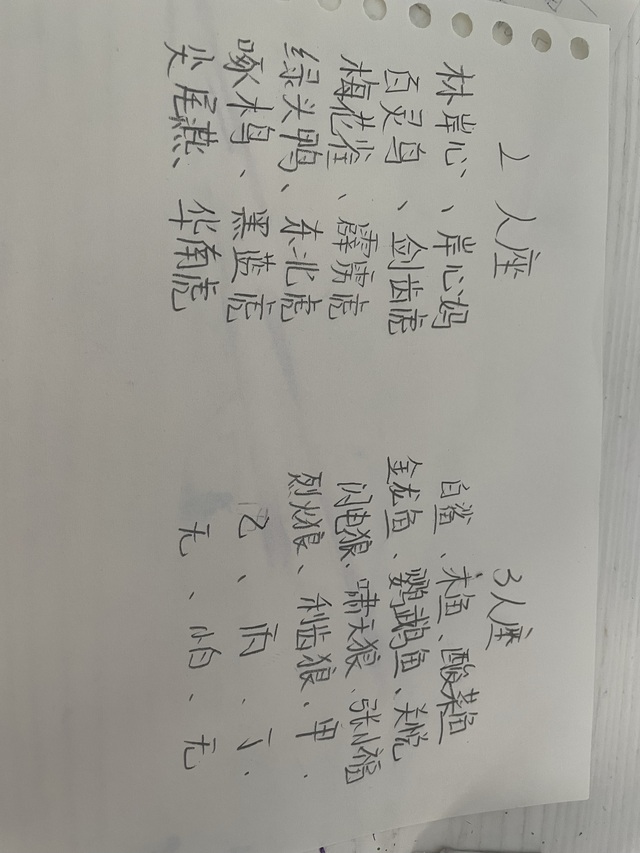 2人座
林岸心、、岸心妈
百灵鸟、剑齿虎
梅花雀、霹雳虎
绿头鸭、东北虎
啄木鸟、黑蓝虎
尖尾燕、华南虎
3人座
白鲨、木鱼、酸菜鱼
金龙鱼、鹦鹉鱼、关悦
闪电狼、啸天狼、张小福
烈火狼、利齿狼、甲、
乙、丙、丁、
无、怕、无